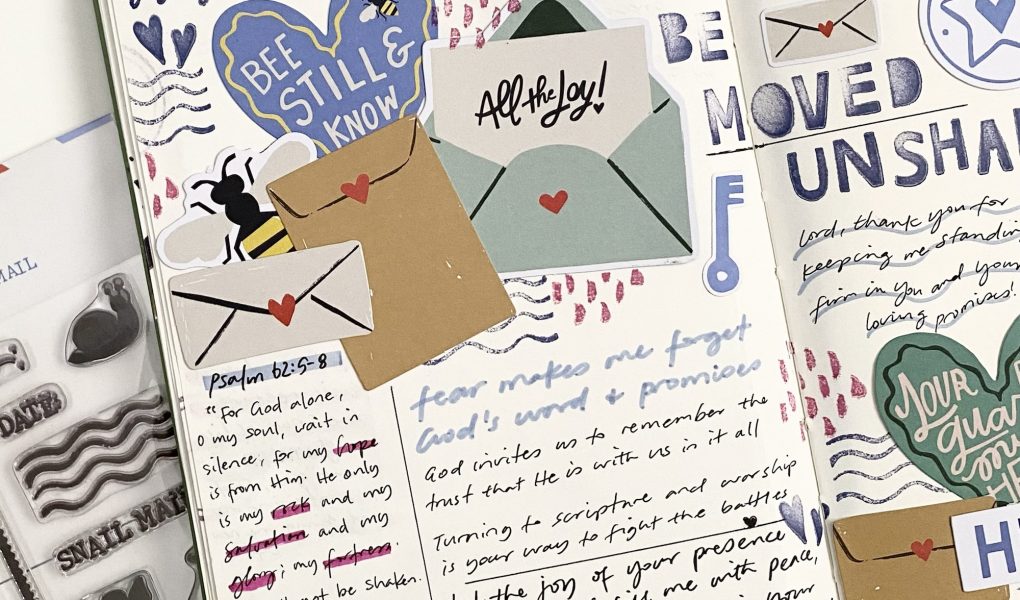 BEE
STILL &
KNOW
All the Joy!
BE
MOVED
Psalm 62:5-8
"For God alone,
o my soul, wait in
silence, for my hope
is from Him. He only
is my rock and my
salvation and my
glory; my fortress.
not be shaken.
fear makes me forget
God's word + promises
God invites us to remember the
trust that He is with us in it all
Turning to scripture and worship
is your way to fight the battles
the joy of your presence
me with peace,
your
Lord, thank you for
keeping me standing
firm in you and your
loving promises!
YOUR
MAIL
DATE
SNAIL MAIL
H